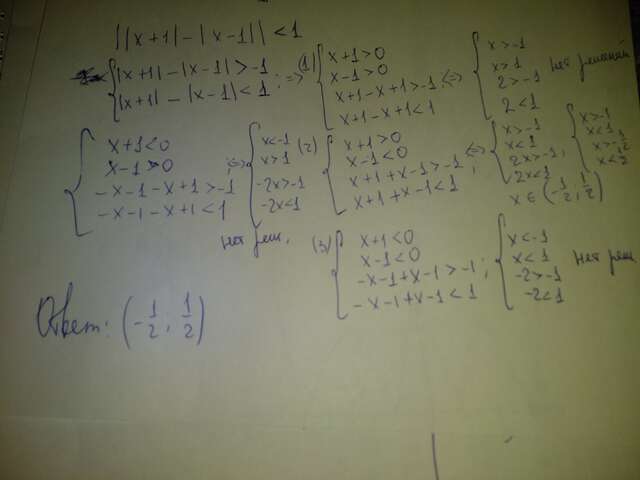 ||x+1|-|x-1||<1
{|x+1|-|x-1|>-1
|x+1|-|x-1|<1 ; => (1)
{x+1>0
x-1>0
x+1-x+1>-1
x+1-x+1<1 <=>
{x>-1
x>1
2>-1
2<1 нет решений
{x+1<0
x-1>0
-x-1-x+1>-1
-x-1-x+1<1 ; <=>
{x<-1
x>1
-2x>-1
-2x<1
нет реш.
(2) {x+1>0
x-1<0
x+1+x-1>-1
x+1+x-1<1 ; <=>
{x>-1
x<1
2x>-1
2x<1 ;
{x>-1
x<1
x>-1/2
x<1/2
x∈(-1/2; 1/2)
(3) {x+1<0
x-1<0
-x-1+x-1>-1
-x-1+x-1<1 ;
{x<-1
x<1
-2>-1
-2<1 нет реш
Ответ: (-1/2; 1/2)